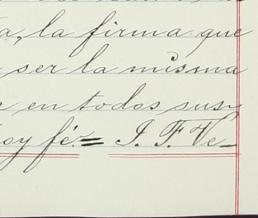 a, la firma que
ser la misma
en todos sus
oy fé.= I. F. Ve-